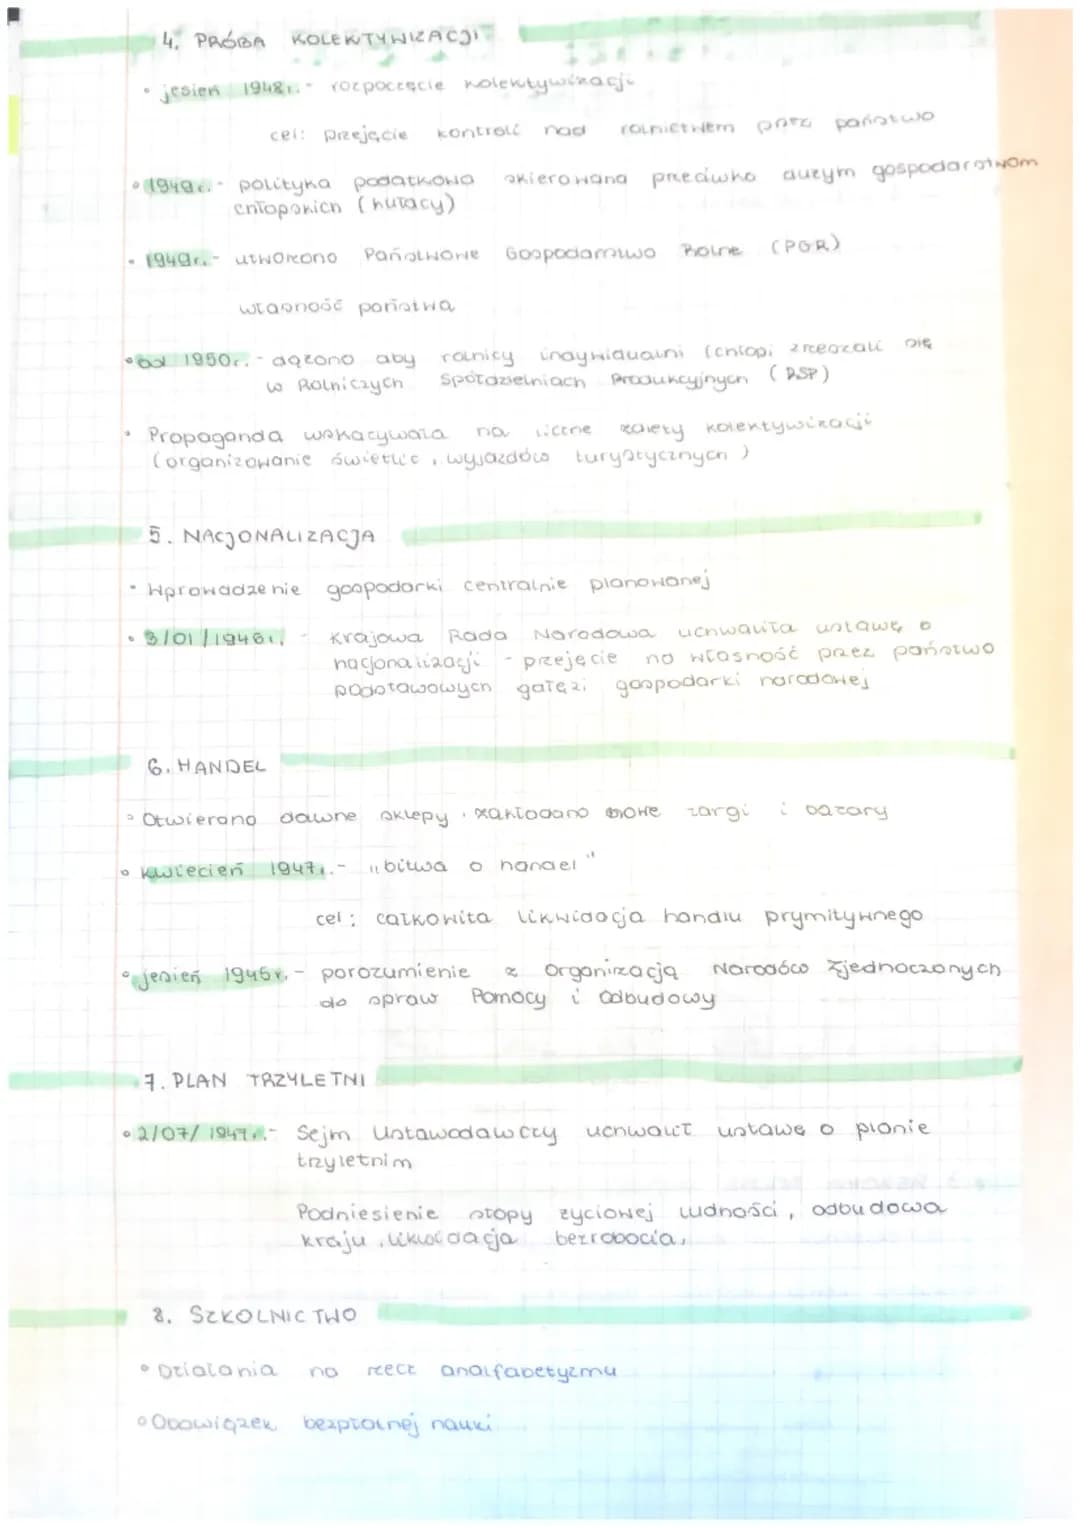 4. PRÓBA KOLEKTYWIZACJI
• jesień 1948r. - rozpoczęcie kolektywizacji
cel: przejęcie kontroli nad rolnictwem przez państwo
• 1949r. - polityka podatkowa skierowana przeciwko dużym gospodarstwom
chłopskich (kułacy)
• 1949r. - utworzono Państwowe Gospodarstwo Rolne (PGR)
własność państwa
• od 1950r. - dążono aby rolnicy indywidualni (chłopi zrzeszali się
w Rolniczych Spółdzielniach Produkcyjnych (RSP)
• Propaganda wskazywała na liczne zalety kolektywizacji
(organizowanie świetlic, wyjazdów turystycznych)
5. NACJONALIZACJA
• Wprowadzenie gospodarki centralnie planowanej
• 3/01/1946r. - Krajowa Rada Narodowa uchwaliła ustawę o
nacjonalizacji - przejęcie na własność przez państwo
podstawowych gałęzi gospodarki narodowej
6. HANDEL
• Otwierano dawne sklepy, zakładano nowe targi i bazary
• kwiecień 1947r. - „bitwa o handel"
cel: całkowita likwidacja handlu prymitywnego
• jesień 1945r. - porozumienie z Organizacją Narodów Zjednoczonych
do spraw Pomocy i Odbudowy
7. PLAN TRZYLETNI
• 2/07/1947r. - Sejm Ustawodawczy uchwalił ustawę o planie
trzyletnim
Podniesienie stopy życiowej ludności, odbudowa
kraju, likwidacja bezrobocia,
8. SZKOLNICTWO
• Działania na rzecz analfabetyzmu
• Obowiązek bezpłatnej nauki